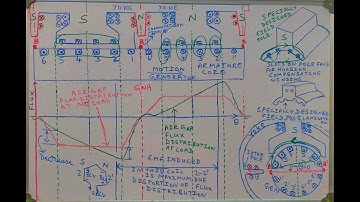 YOKE
YOKE
SPECIALLY
DESIGNED
FIELD
POLE
S
S
N
S
S
6 5 4 3 2 1
MOTION
GENERATOR
ARMATURE
CORE
SLOTS ON POLE FACE
FOR HOUSING
COMPENSATING
WINDING
SPECIALLY DESIGNED
FIELD POLE LAMINATION
FLUX
AIR GAP
FLUX DISTRIBUTION
AT NO LOAD
GNA
AIR GAP
FLUX
DISTRIBUTION
AT LOAD
θ
Decrease
S
N
EMF INDUCED
IN THIS COIL
IS MAXIMUM DUE
DISTORTION OF FLUX
DISTRIBUTION
2-2'
YOKE
S
INTER
POLE
GEN